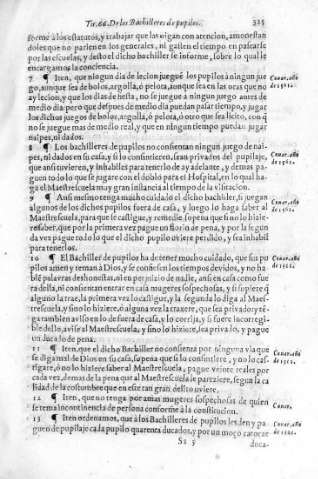 Tit. 66. De los Bachilleres de pupilos. 325
forme a los estatutos, y trabajar que las oigan con atencion, amonestan
doles que no parienen los generales, ni gasten el tiempo en pasearse
por las escuelas, y desto el dicho bachiller se informe, sobre lo qual le
encargamos la conciencia.
7 ¶ Iten, que ningun dia de lecion jueguẽ los pupilos a ningun jue
go, aunque sea de bolos, argolla, ò pelota, aunque sea en las oras que no
ay lecion, y que los dias de fiesta, no se juegue a ningun juego antes de
medio dia: pero que despues de medio dia puedan pasar tiempo, y jugar
los dichos juegos de bolos, argolla, ò pelota, ò otro que sea licito, con q̃
no se juegue mas de medio real, y que en ningun tiempo puedan jugar
naipes, ni dados.
8 ¶ Los bachilleres de pupilos no consientan ningun juego de nai-
pes, ni dados en su casa, y si lo consintieren, sean privados del pupilaje,
que ansi tuvieren, y inhabiles para tenerlo de ay adelante, y demas pa-
guen todo lo que se jugare con el doblo para el Hospital, en lo qual ha-
ga el Maestrescuela muy gran instancia al tiempo de la visitacion.
9 ¶ Ansi mesmo tenga mucho cuidado el dicho bachiller, si juegan
algunos de los dichos pupilos fuera de casa, y luego lo haga saber al
Maestrescuela, para que le castigue, y remedie, so pena que si no lo hizie-
re saber, que por la primera vez pague un florin de pena, y por la segun
da vez pague todo lo que el dicho pupilo uviere perdido, y sea inhabil
para tenerlos.
10 ¶ El Bachiller de pupilos ha de tener mucho cuidado, que sus pu
pilos amen y teman a Dios, y se confiesen los tiempos devidos, y no ha-
blẽ palabras deshonestas, ni en perjuizio de nadie, ansi en casa como fue
ra della, ni consientan entrar en casa mugeres sospechosas, y si supiere q̃
alguno la trae, la primera vez lo castigue, y la segunda lo diga al Maes-
trescuela, y sino lo hiziere, o alguna vez la traxere, que sea privado: y tẽ-
ga tambien aviso en lo de fuera de casa, y lo corrija, y si fuere incorregi-
ble dello, avise al Maestrescuela, y sino lo hiziere, sea privado, y pague
un ducado de pena.
11 ¶ Iten, que el dicho Bachiller no consienta por ninguna via que
se diga mal de Dios en su casa, so pena que si lo consintiere, y no lo cas-
tigare, ò no lo hiziere saber al Maestrescuela, pague veinte reales por
cada vez, demas de la pena que al Maestrescuela le pareciere, segun la ca
lidad de la costumbre que en ese tan gran delito uviere.
12 ¶ Iten, que no tenga por amas mugeres sospechosas de quien
se tema incontinencia de persona conforme à la constitucion.
13 ¶ Iten ordenamos, que à los Bachilleres de pupilos les den y pa-
guen de pupilaje cada pupilo quarenta ducados, y por un moço catorze
Ss 3
duca-